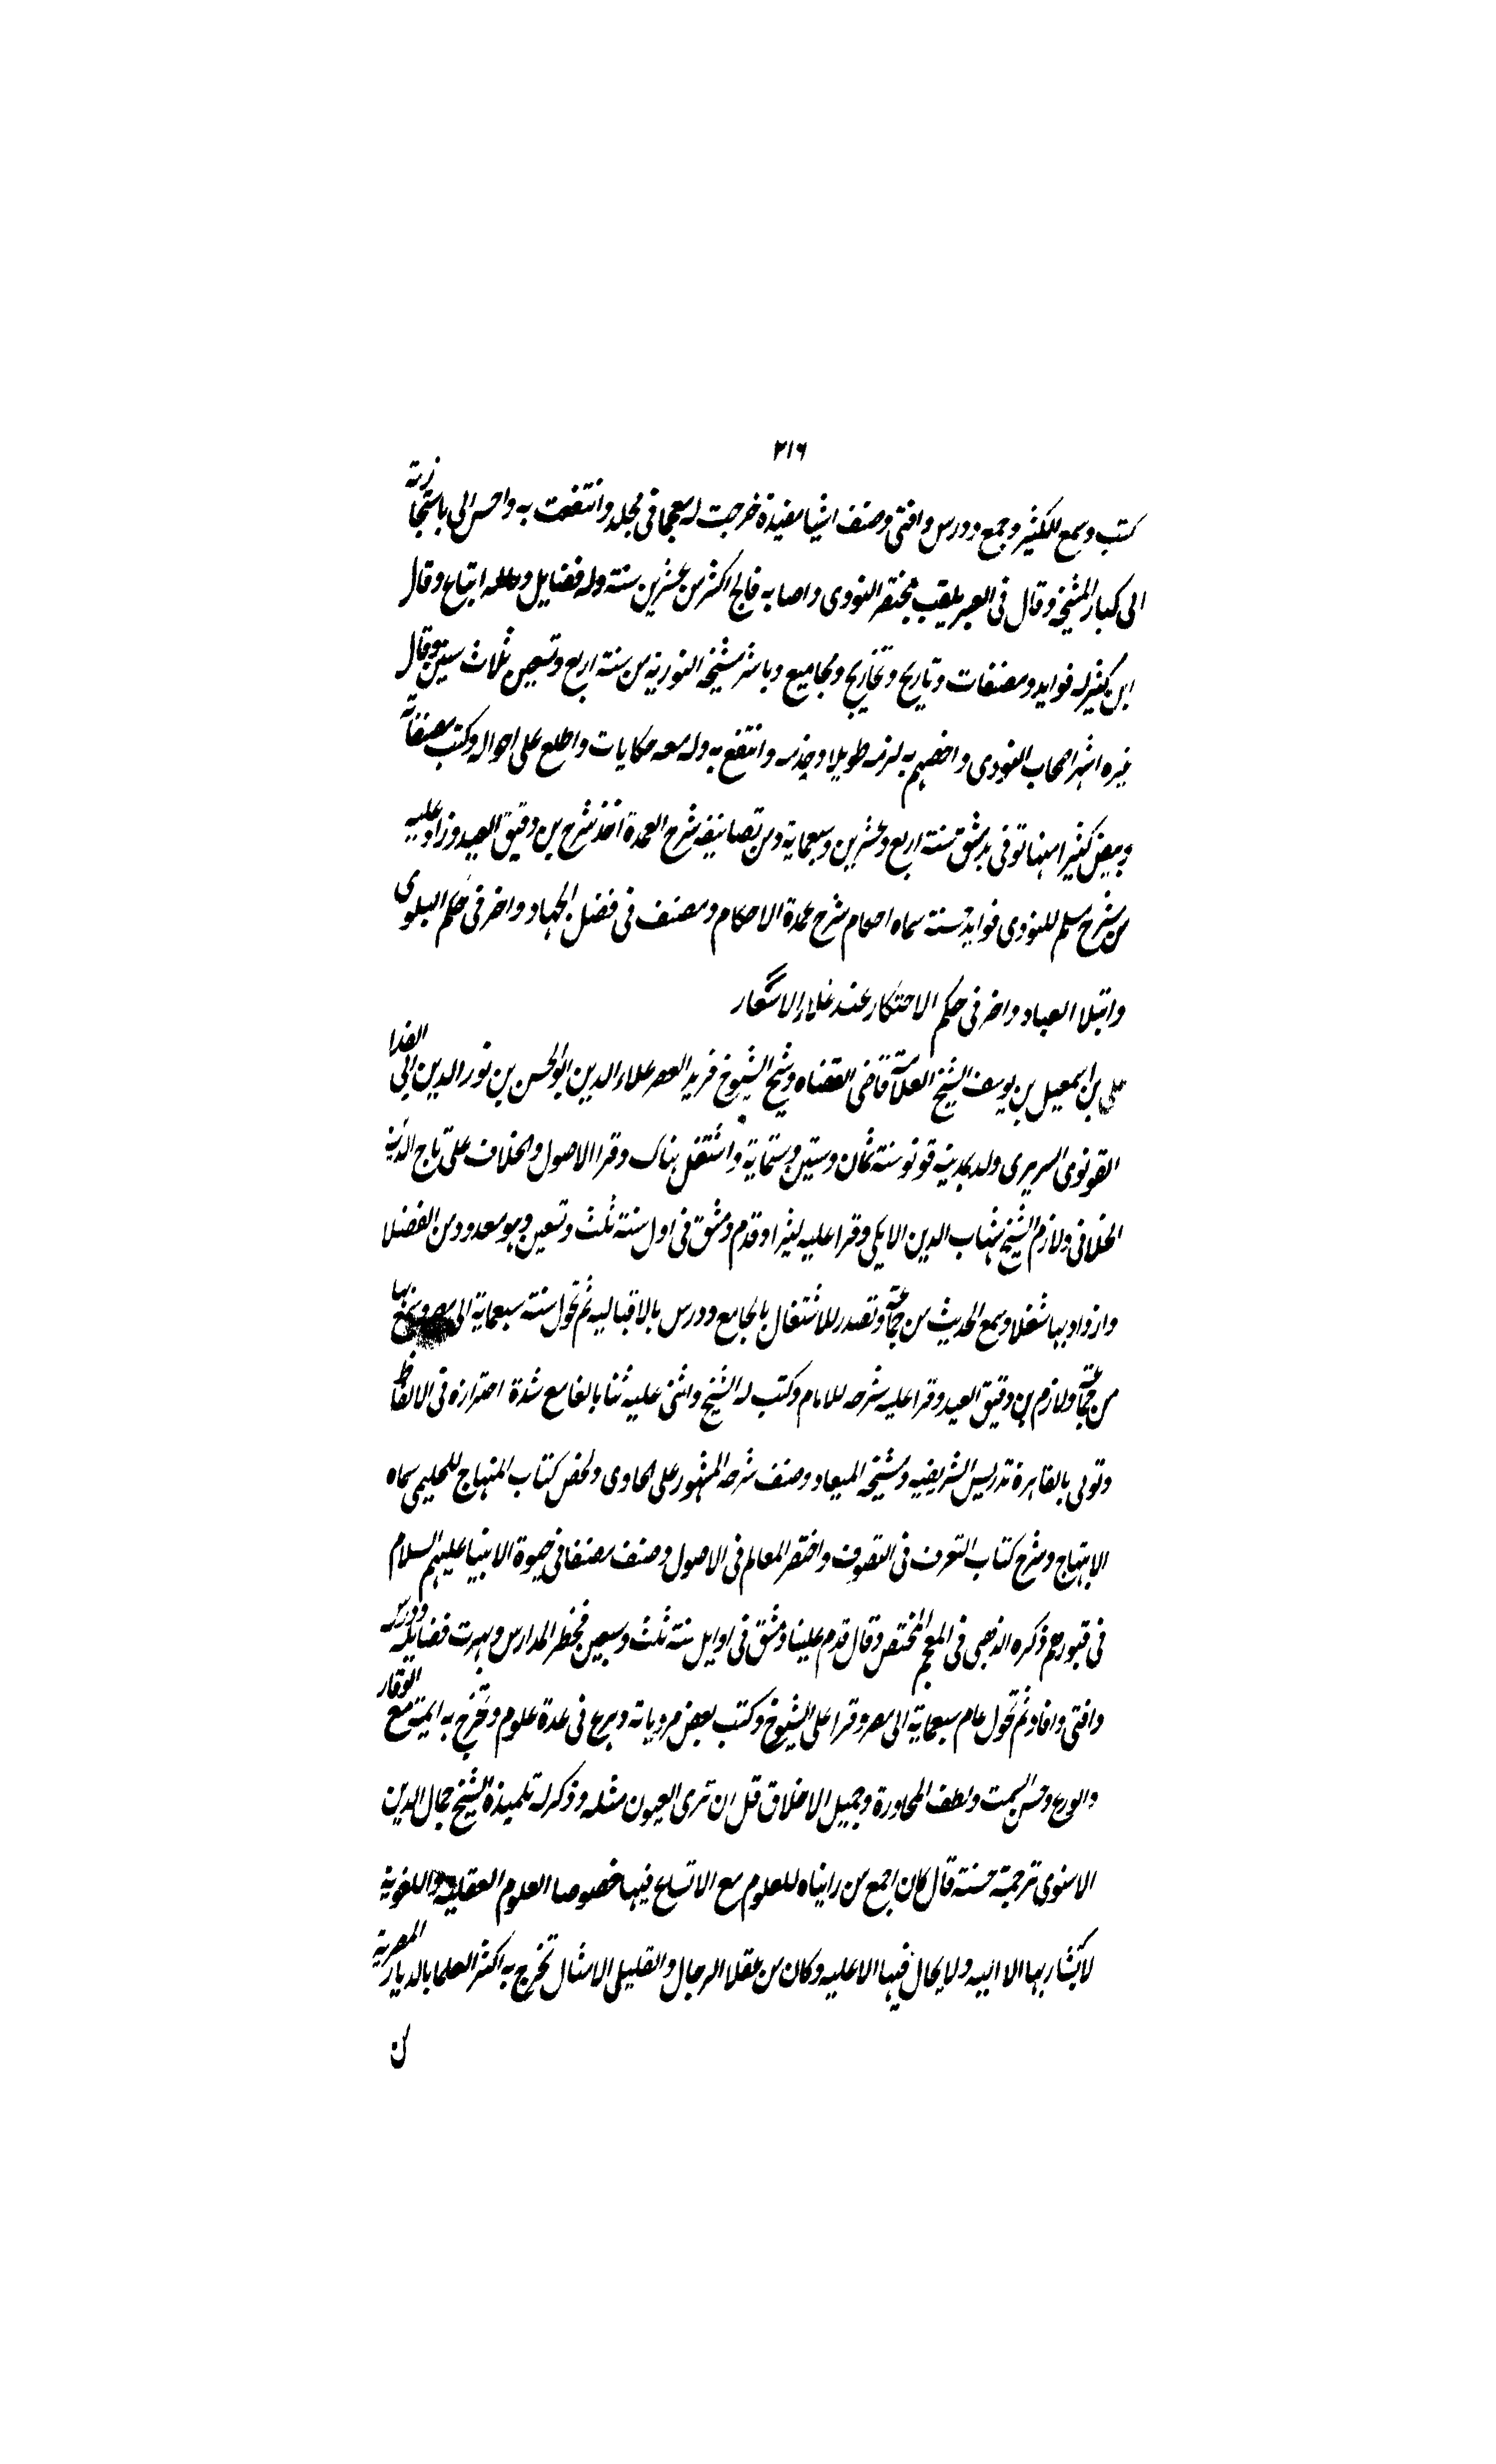 ٢١٦
كتب وسمع الكثير وجمع ودرس وافتى وصنف اشيا مفيدة خرجت له معجما فى مجلد وانتفعت به واحسن الى باستجازته
الى كبار المشيخة وقال فى العبر يلقب بمختصر النووى واصابه فالج اكثر من عشرين سنة وله فضايل وعلله اتباع وقال
ابن كثير له فوايد ومصنفات وتاريخ وتخاريج ومجاميع وباشر مشيخة النورية من سنة اربع وتسعين ثلاث سنين وقال
غيره اشهر اصحاب النووى واخصهم به لزمه طويلا وخدمه وانتفع به وله معه حكايات واطلع على احواله وكتب مصنفاته
وبيض كثيرا منها توفى بدمشق سنة اربع وعشرين وسبعماية ومن تصانيفه شرح العمدة اخذ شرح بن دقيق العيد وزاد عليه
من شرح مسلم للنووى فوايد حسنة سماه احكام شرح عمدة الاحكام ومصنف فى فضل الجهاد واخر فى حكم البلوى
وابتلا العباد واخر فى حكم الاحتكار عند غلاء الاسعار
على بن اسمعيل بن يوسف الشيخ العلامة قاضى القضاه وشيخ الشيوخ فريد العصر علاء الدين ابو الحسن بن نور الدين ابى الفدا
القونوى السريرى ولد بمدينة قونو سنة ثمان وستين وستماية واشتغل هناك وقرا الاصول والخلاف على تاج الدين
الخلافى ولازم الشيخ شهاب الدين الايكى وقرا عليه كثيرا وقدم دمشق فى اول سنة ثلث وتسعين وهو معدود من الفضلا
وازداد بها شغلا وسمع الحديث من جماعة وتصدر للاشتغال بالجامع ودرس بالاقباليه ثم تحول سنة سبعماية الى مصر وسمع بها
من جماعة ولازم بن دقيق العيد وقرا عليه شرحه للامام وكتب له الشيخ واثنى عليه ثنا بالغا مع شدة احترازه فى الالفاظ
وتولى بالقاهرة تدريس الشريفيه ومشيخة الميعاد وصنف شرحه المشهور على الحاوى ولخص كتاب المنهاج للحليمى سماه
الابتهاج وشرح كتاب التعرف فى التصوف واختصر المعالم فى الاصول وصنف مصنفا فى حيوة الانبيا عليهم السلام
فى قبورهم ذكره الذهبى فى المعجم المختص وقال قدم علينا دمشق فى اوايل سنة ثلث وسبعين فحضر المدارس وبهرت فضايله ودرس
وافتى وافاد ثم تحول عام سبعماية الى مصر وقرا على الشيوخ وكتب بعض مروياته وبرع فى عدة علوم وتخرج به ايمة مع الوقار
والورع وحسن السمت ولطف المحاورة وجميل الاخلاق قل ان ترى العيون مثله وذكر له تلميذة الشيخ جمال الدين
الاسنوى ترجمة حسنة قال كان اجمع من رايناه للعلوم مع الاتساع فيها خصوصا العلوم العقلية واللغوية
لا يشار بها الا اليه ولا يحال فيها الا عليه وكان من عقلا الرجال والقليلى الامثال تخرج به اكثر العلما بالديار المصرية